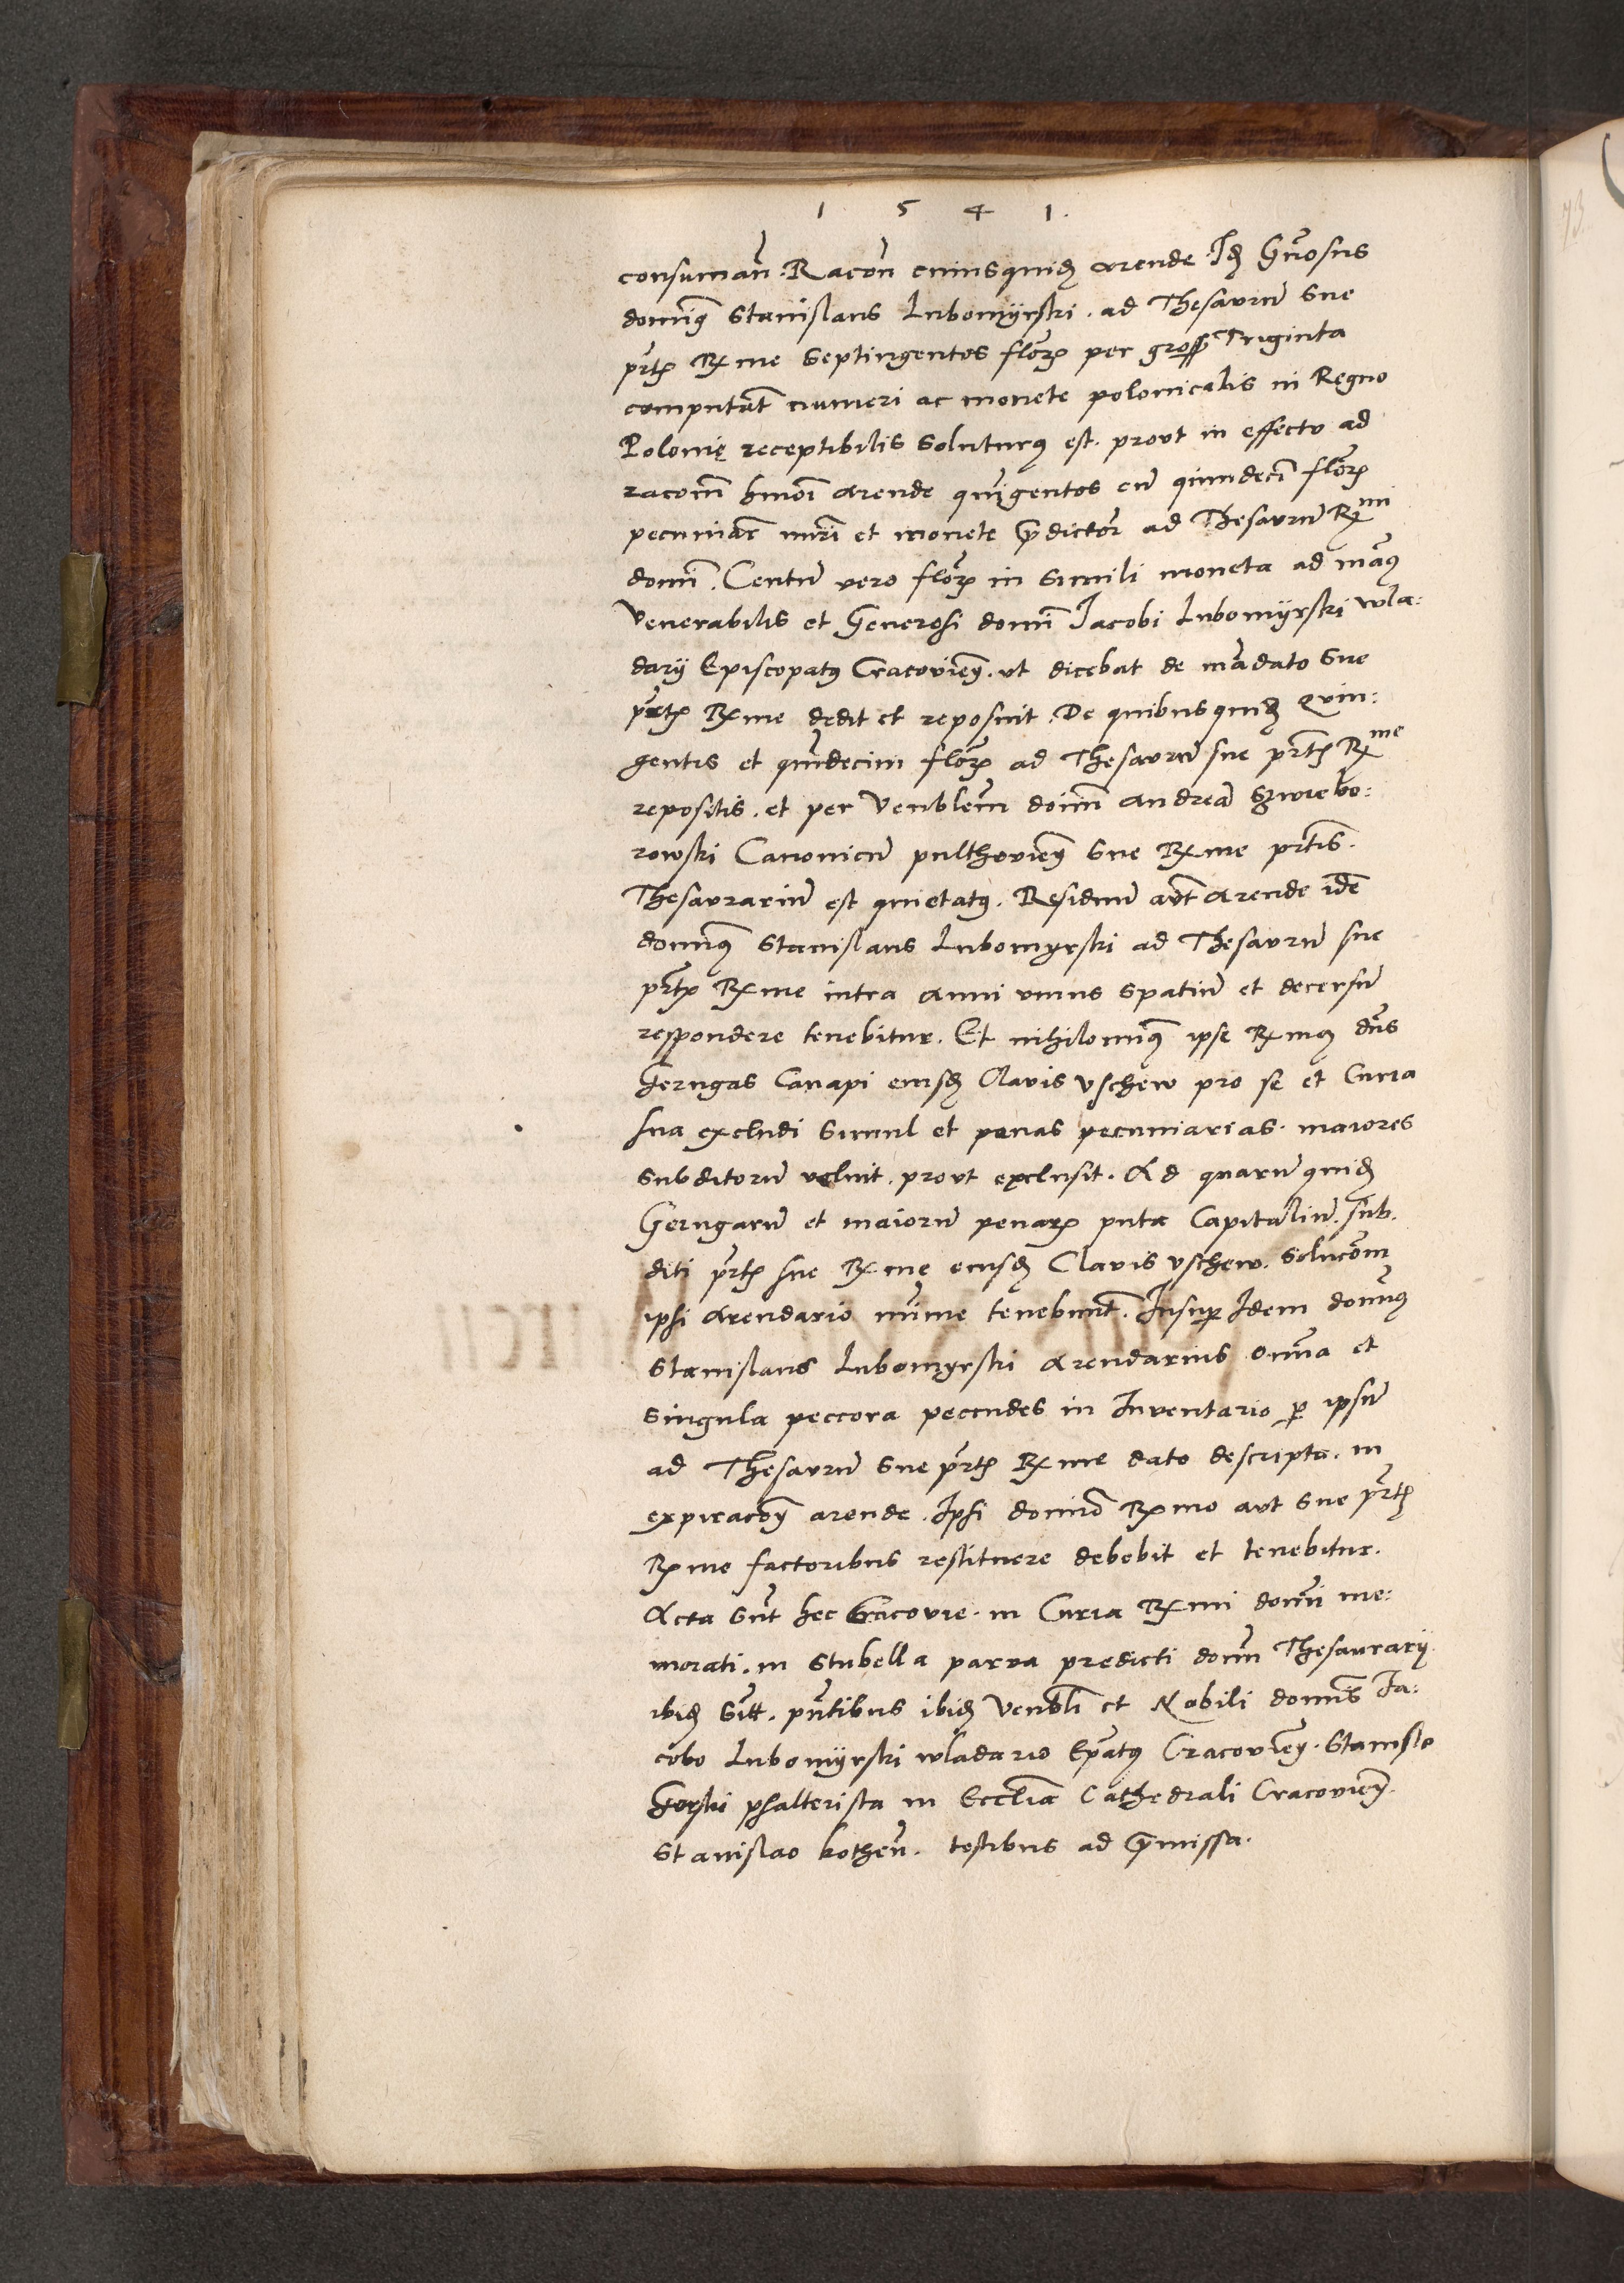 1 5 4 1.
consumañ. Racoñ cuiusquid᷎ arende Id᷎ Gñosus
domiꝰ Stanislaus Lubomÿrski. ad Thesaurũ Sue
prt᷎ R᷎me Septingentos floꝝ per gross Triginta
computat̃ numeri ac monete polonicalis in Regno
Polonię receptibilis Soluturꝰ est. prout in effectu ad
racom̃ hm̃oi arende quĩgentos cũ quindecĩ floꝝ
pecuniar̃ nũri et monete p̃dictor̃ ad Thesaurũ R᷎mi
domĩ. Centũ vero floꝝ in Simili moneta ad manꝰ
Venerabilis et Generosi domĩ Jacobi Lubomÿrski wla:
darÿ Episcopatꝰ Cracovieñ. ut dicebat de mãdato Sue
prt᷎ R᷎me dedit et reposuit. De quibusquid᷎ Quin:
gentis et quĩdecim floꝝ ad Thesaurũ sue prt᷎ R᷎me
repositis. et per Venblem̃ doĩm Andreã Szwiebo:
rowski Canonicũ pulthovieñ Sue R᷎me prtis.
Thesaurariũ est quietatꝰ. Residuũ aut̃ arende idẽ
domiꝰ Stanislaus Lubomyrski ad Thesaurũ sue
prt᷎ R᷎me intra anni unius spatiũ et decersũ
respondere tenebitur. Et nihilominꝰ ipse R᷎mꝰ dñs
Gerugas Canapi eiusd᷎ Clavis Uschew pro se et Curia
sua excludi Simul et penas pecuniarias. maiores
subditorũ voluit. prout exclusit. Ad quarũ quid᷎
Gerugarũ et maiorũ penaꝝ puta Capitaliũ. sub.
diti prt᷎ sue R᷎me eiusd᷎ Clavis Uschew. Solucom̃
ipsi Arendario mĩme tenebunt̃. Insup Idem domiꝰ
Stanislaus Lubomyrski Arendarius om̃ia et
Singula peccora pecudes in Inventario p ipsũ
ad Thesaurũ Sue prt᷎ R᷎me dato descripta. in
expiracoñ arende. Ipsi domĩo R᷎mo aut Sue prt᷎
R᷎me factoribus restituere debebit et tenebitur.
Acta Sũt hec Cracovie. in Curia R᷎mi domĩ me:
morati. in Stubella parva predicti domĩ Thesaurarÿ
ibid᷎ Sitt. pñtibus ibid᷎ Venbli et Nobili domĩs Ja:
cobo Lubomÿrski wladario Ep̃atꝰ Cracovieñ. Stanislo
Gorski psalterista in Eccl̃ia Cathedrali Cracovieñ.
Stanislao kotheñ. testibus ad p̃missa.